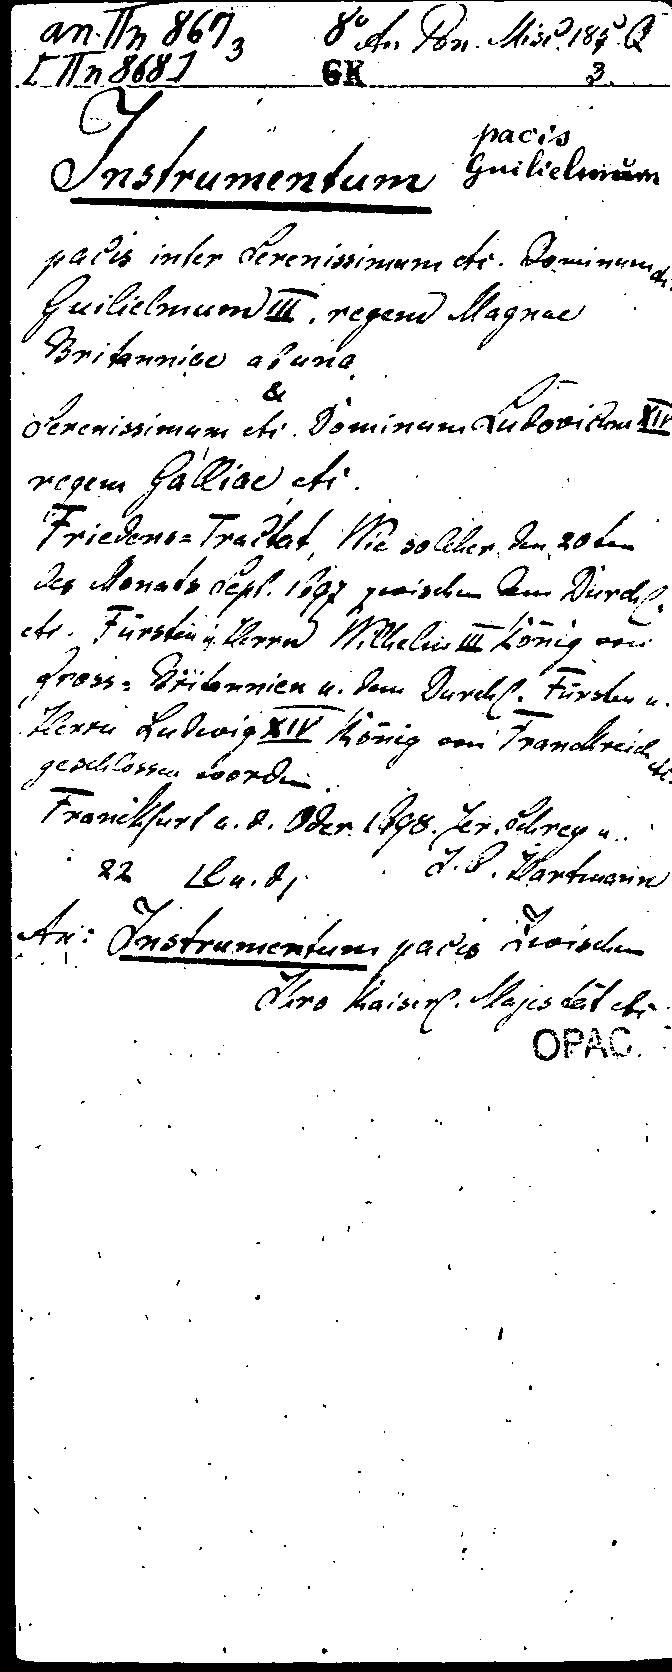 an IIn 867 3 8° An Pon. Misc. 187. Q
[IIn 868] GK 3.
Instrumentum pacis
Guilielmum
pacis inter Serenissimum etc. Dominum etc.
Guilielmum III, regem Magnae
Britanniae ab una
&
Serenissimum etc. Dominum Ludovicum XIV
regem Galliae etc.
Friedens= Tractat, Wie solcher den 20ten
des Monats Sept. 1697 zwischen dem Durchl.
etc. Fürsten u. Herrn Wilhelm III König von
Gross= Britannien u. dem Durchl. Fürsten u.
Herrn Ludwig XIV König von Franckreich etc.
geschlossen worden.
Franckfurt a. d. Oder 1698. Jer. Schrey u.
22 J. C. Hartmann
An: Instrumentum pacis Zwischen
Ihro Kaiserl. Majestät etc.
OPAC.